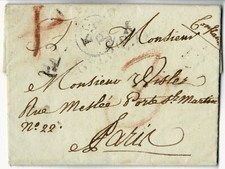 A Monsieur
Monsieur Wisler
Rue Meslée Porte St. Martin
No. 22.
a Paris